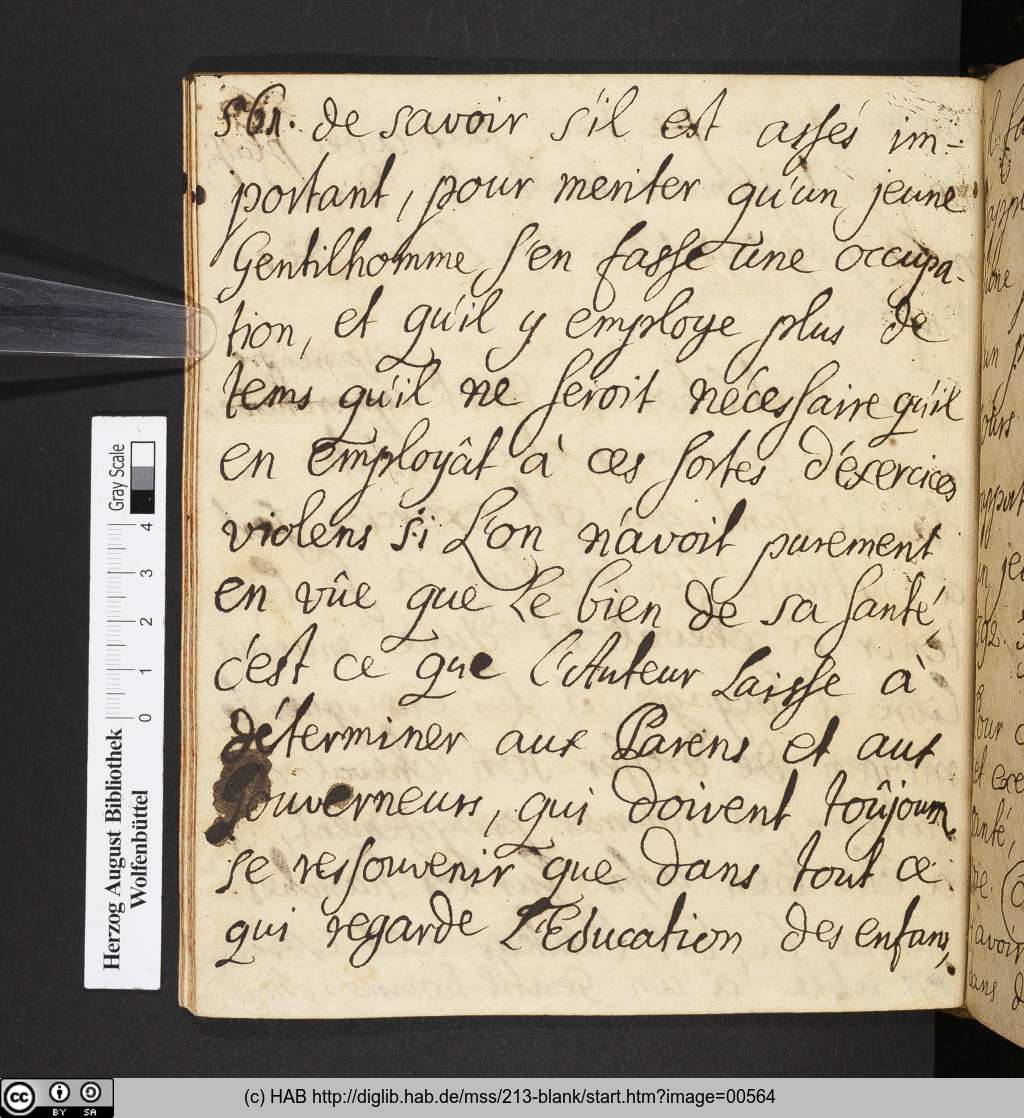 561. de savoir s'il est assés im-
portant, pour meriter qu'un jeune
Gentilhomme s'en fasse une occupa-
tion, et qu'il y employe plus de
tems qu'il ne seroit nécessaire qu'il
en employât à ces sortes d'éxercices
violens si L'on n'avoit purement
en vûe que Le bien de sa santé
c'est ce que l'Auteur Laisse à
déterminer aux Parens et aux
Gouverneurs, qui doivent toûjours
se ressouvenir que dans tout ce
qui regarde L'Education des enfans,
Gray Scale
0 1 2 3 4
Herzog August Bibliothek
Wolfenbüttel
cc BY SA
(c) HAB http://diglib.hab.de/mss/213-blank/start.htm?image=00564